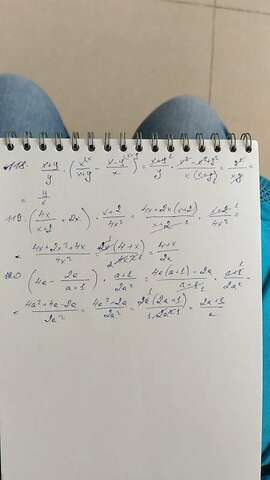 118. x+y/y · (x^x/x+y - x-y^x+y/x) = x+y^1/y · x²-x²+y²/x(x+y) = y²/xy =
= y/x
119. (4x/x+2 + 2x) · x+2/4x² = 4x+2x(x+2)/x+2 · x+2^1/4x² =
= 4x+2x²+4x/4x² = 2x(4+x)/4x² = 4+x/2x
120. (4a - 2a/a+1) · a+1/2a² = 4a(a+1)-2a/a+1 · a+1^1/2a² =
= 4a²+4a-2a/2a² = 4a²+2a/2a² = 2a(2a+1)/2a² = 2a+1/a